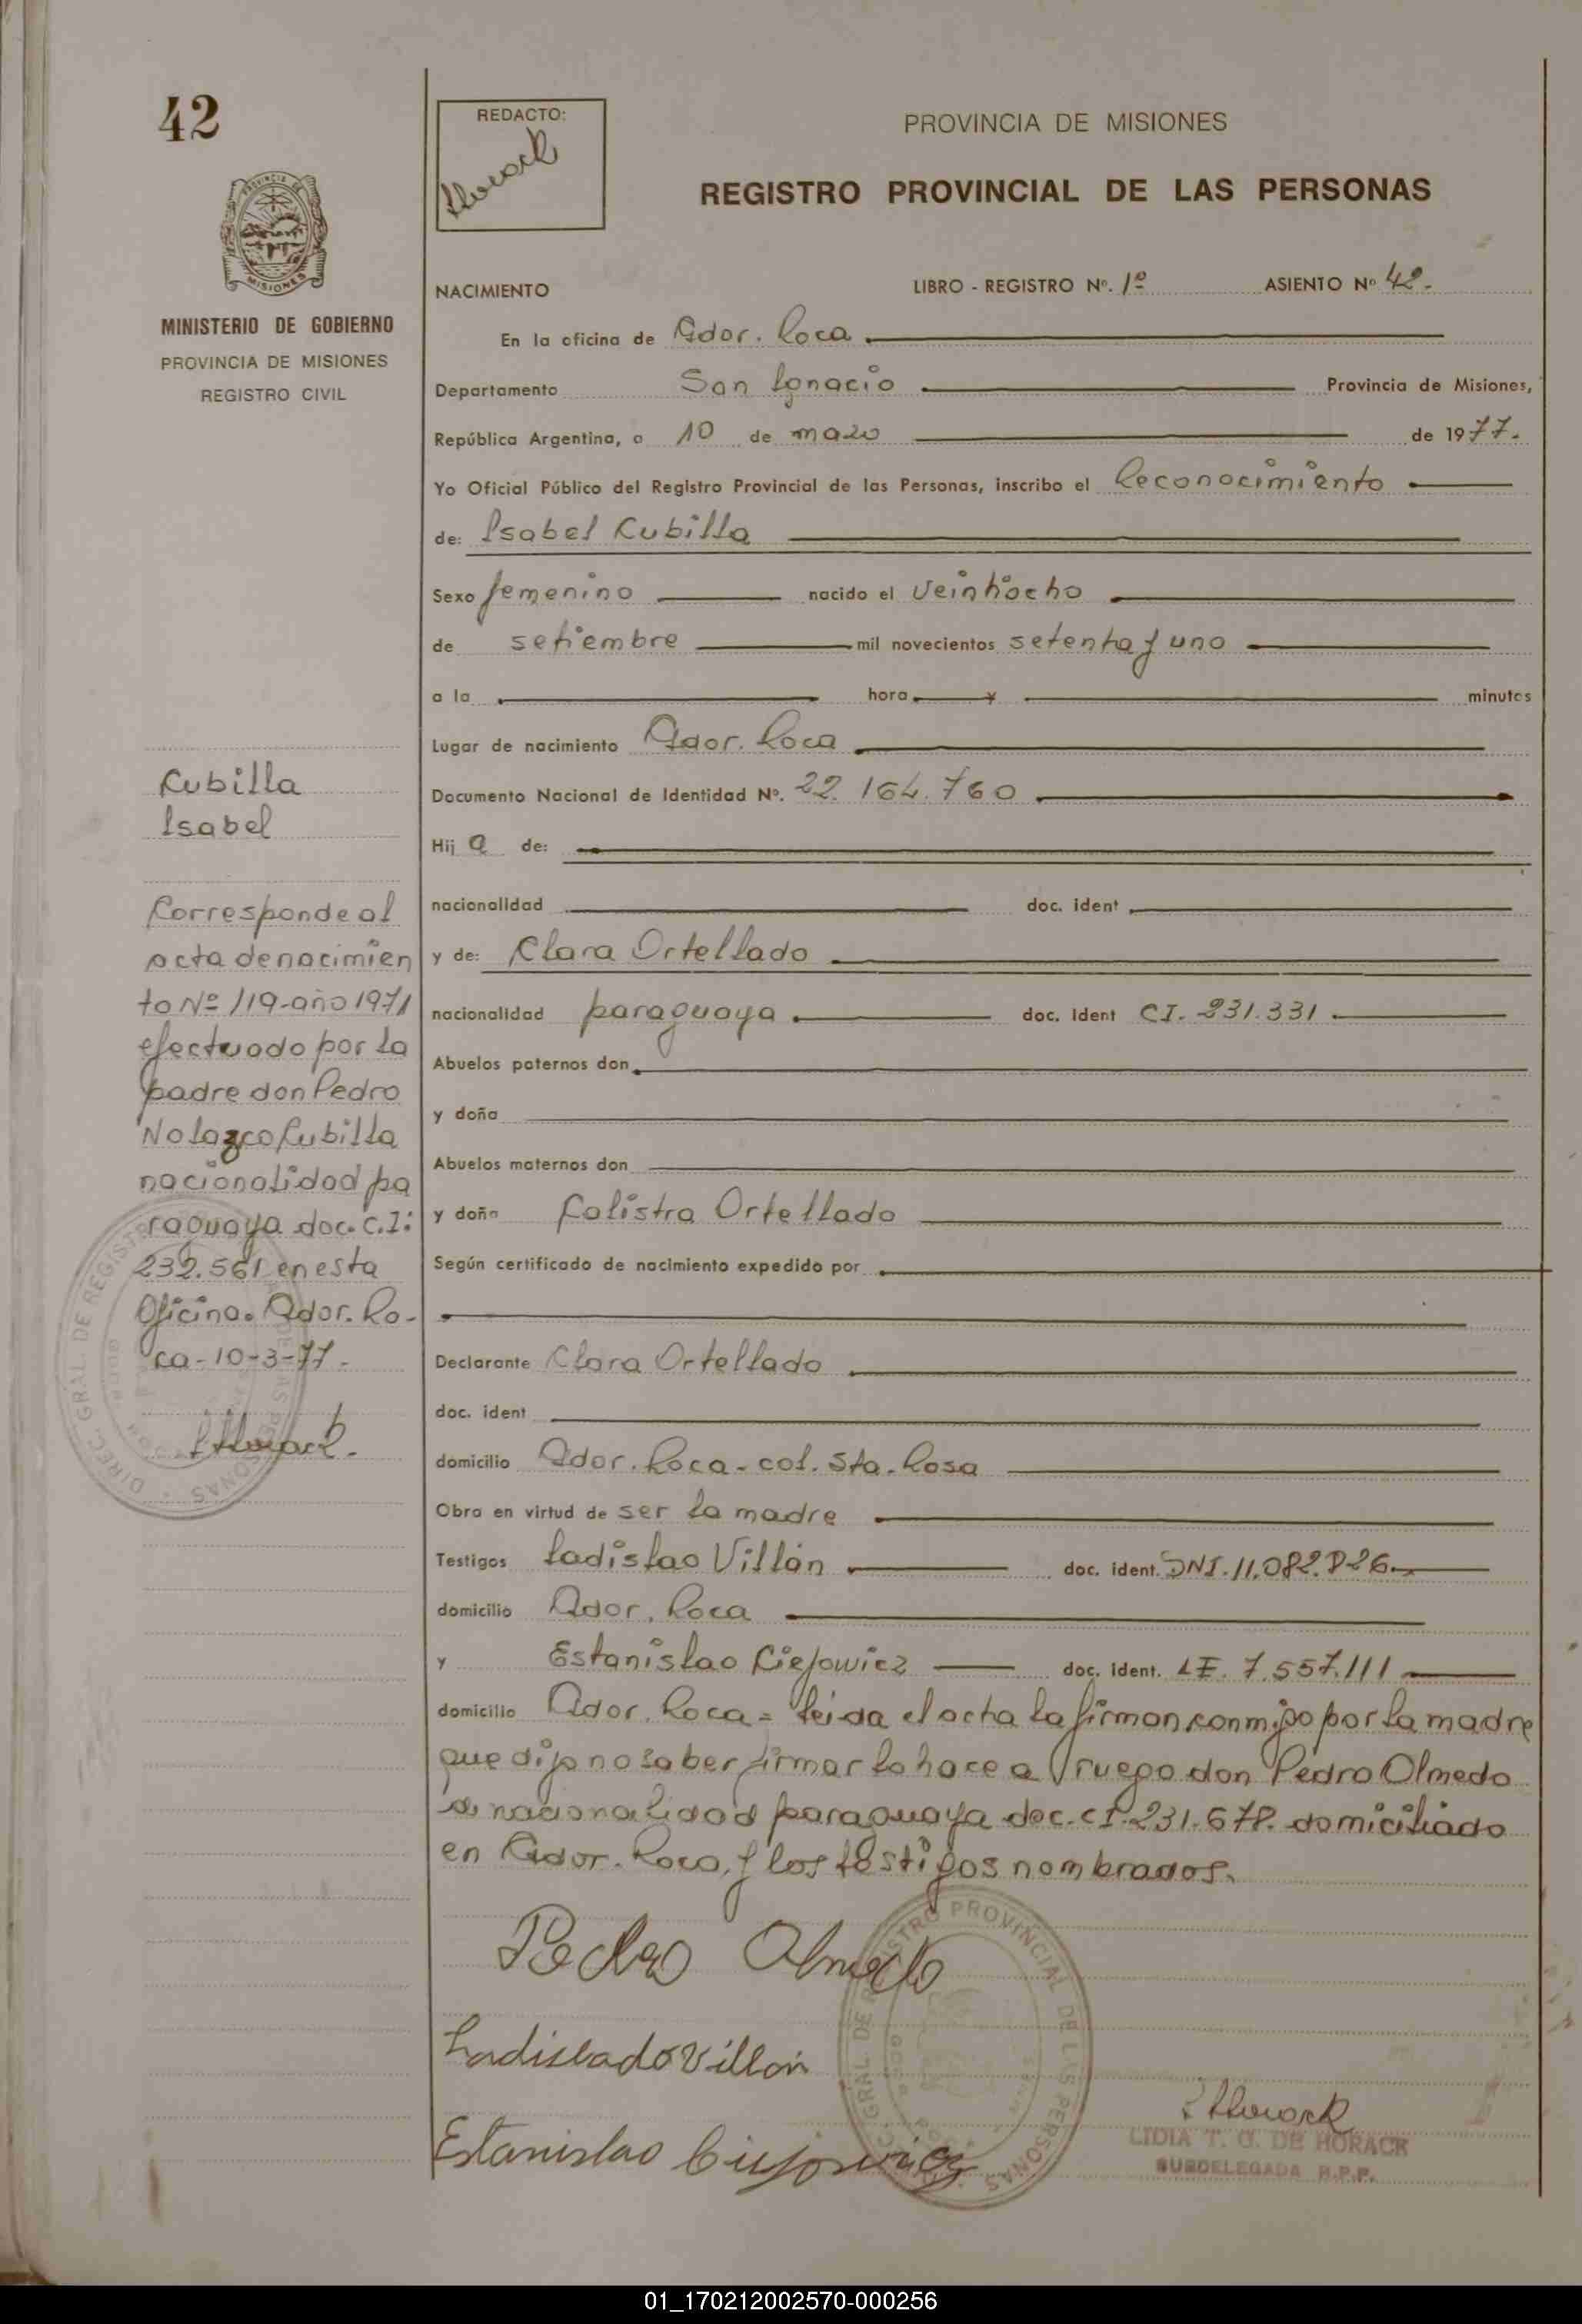 42
MINISTERIO DE GOBIERNO
PROVINCIA DE MISIONES
REGISTRO CIVIL
REDACTO:
Horack
PROVINCIA DE MISIONES
REGISTRO PROVINCIAL DE LAS PERSONAS
NACIMIENTO LIBRO - REGISTRO Nº. 1º ASIENTO Nº 42.-
En la oficina de Gdor. Roca
Departamento San Ignacio Provincia de Misiones,
República Argentina, a 10 de mazo de 1977.
Yo Oficial Público del Registro Provincial de las Personas, inscribo el Reconocimiento
de: Isabel Cubilla
Sexo femenino nacido el veintiocho
de setiembre mil novecientos setenta y uno
a la hora y minutos
Lugar de nacimiento Gdor. Roca
Documento Nacional de Identidad Nº. 22.164.760
Hij a de:
nacionalidad doc. ident
y de: Clara Ortellado
nacionalidad paraguaya doc. ident CI. 231.331
Abuelos paternos don
y doña
Abuelos maternos don
y doña Calistra Ortellado
Según certificado de nacimiento expedido por
Declarante Clara Ortellado
doc. ident
domicilio Gdor. Roca - col. Sta. Rosa
Obra en virtud de ser la madre
Testigos Ladislao Villán doc. ident. DNI. 11.082.826
domicilio Gdor. Roca
y Estanislao Ciejowicz doc. ident. LE. 7.557.111
domicilio Gdor. Roca = leida el acta la firman conmigo por la madre
que dijo no saber firmar lo hace a ruego don Pedro Olmedo
de nacionalidad paraguaya doc. CI. 231.678. domiciliado
en Gdor. Roca, y los testigos nombrados.
Pedro Olmedo
Ladislado Villán
Estanislao Ciejowicz
Horack
LIDIA T. G. DE HORACK
SUBDELEGADA R.P.P.
Cubilla
Isabel
Corresponde al
acta de nacimien
to Nº 119-año 1971
efectuado por la
padre don Pedro
Nolazco Cubilla
nacionalidad pa
raguaya doc. C.I:
232.561 en esta
Oficina. Gdor. Ro-
ca-10-3-77.-
Horack.
01_170212002570-000256